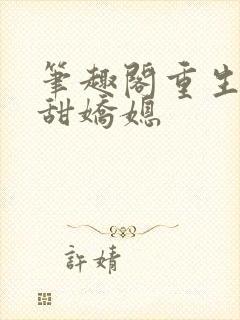 筆趣閣重生
甜嬌媳
許婧